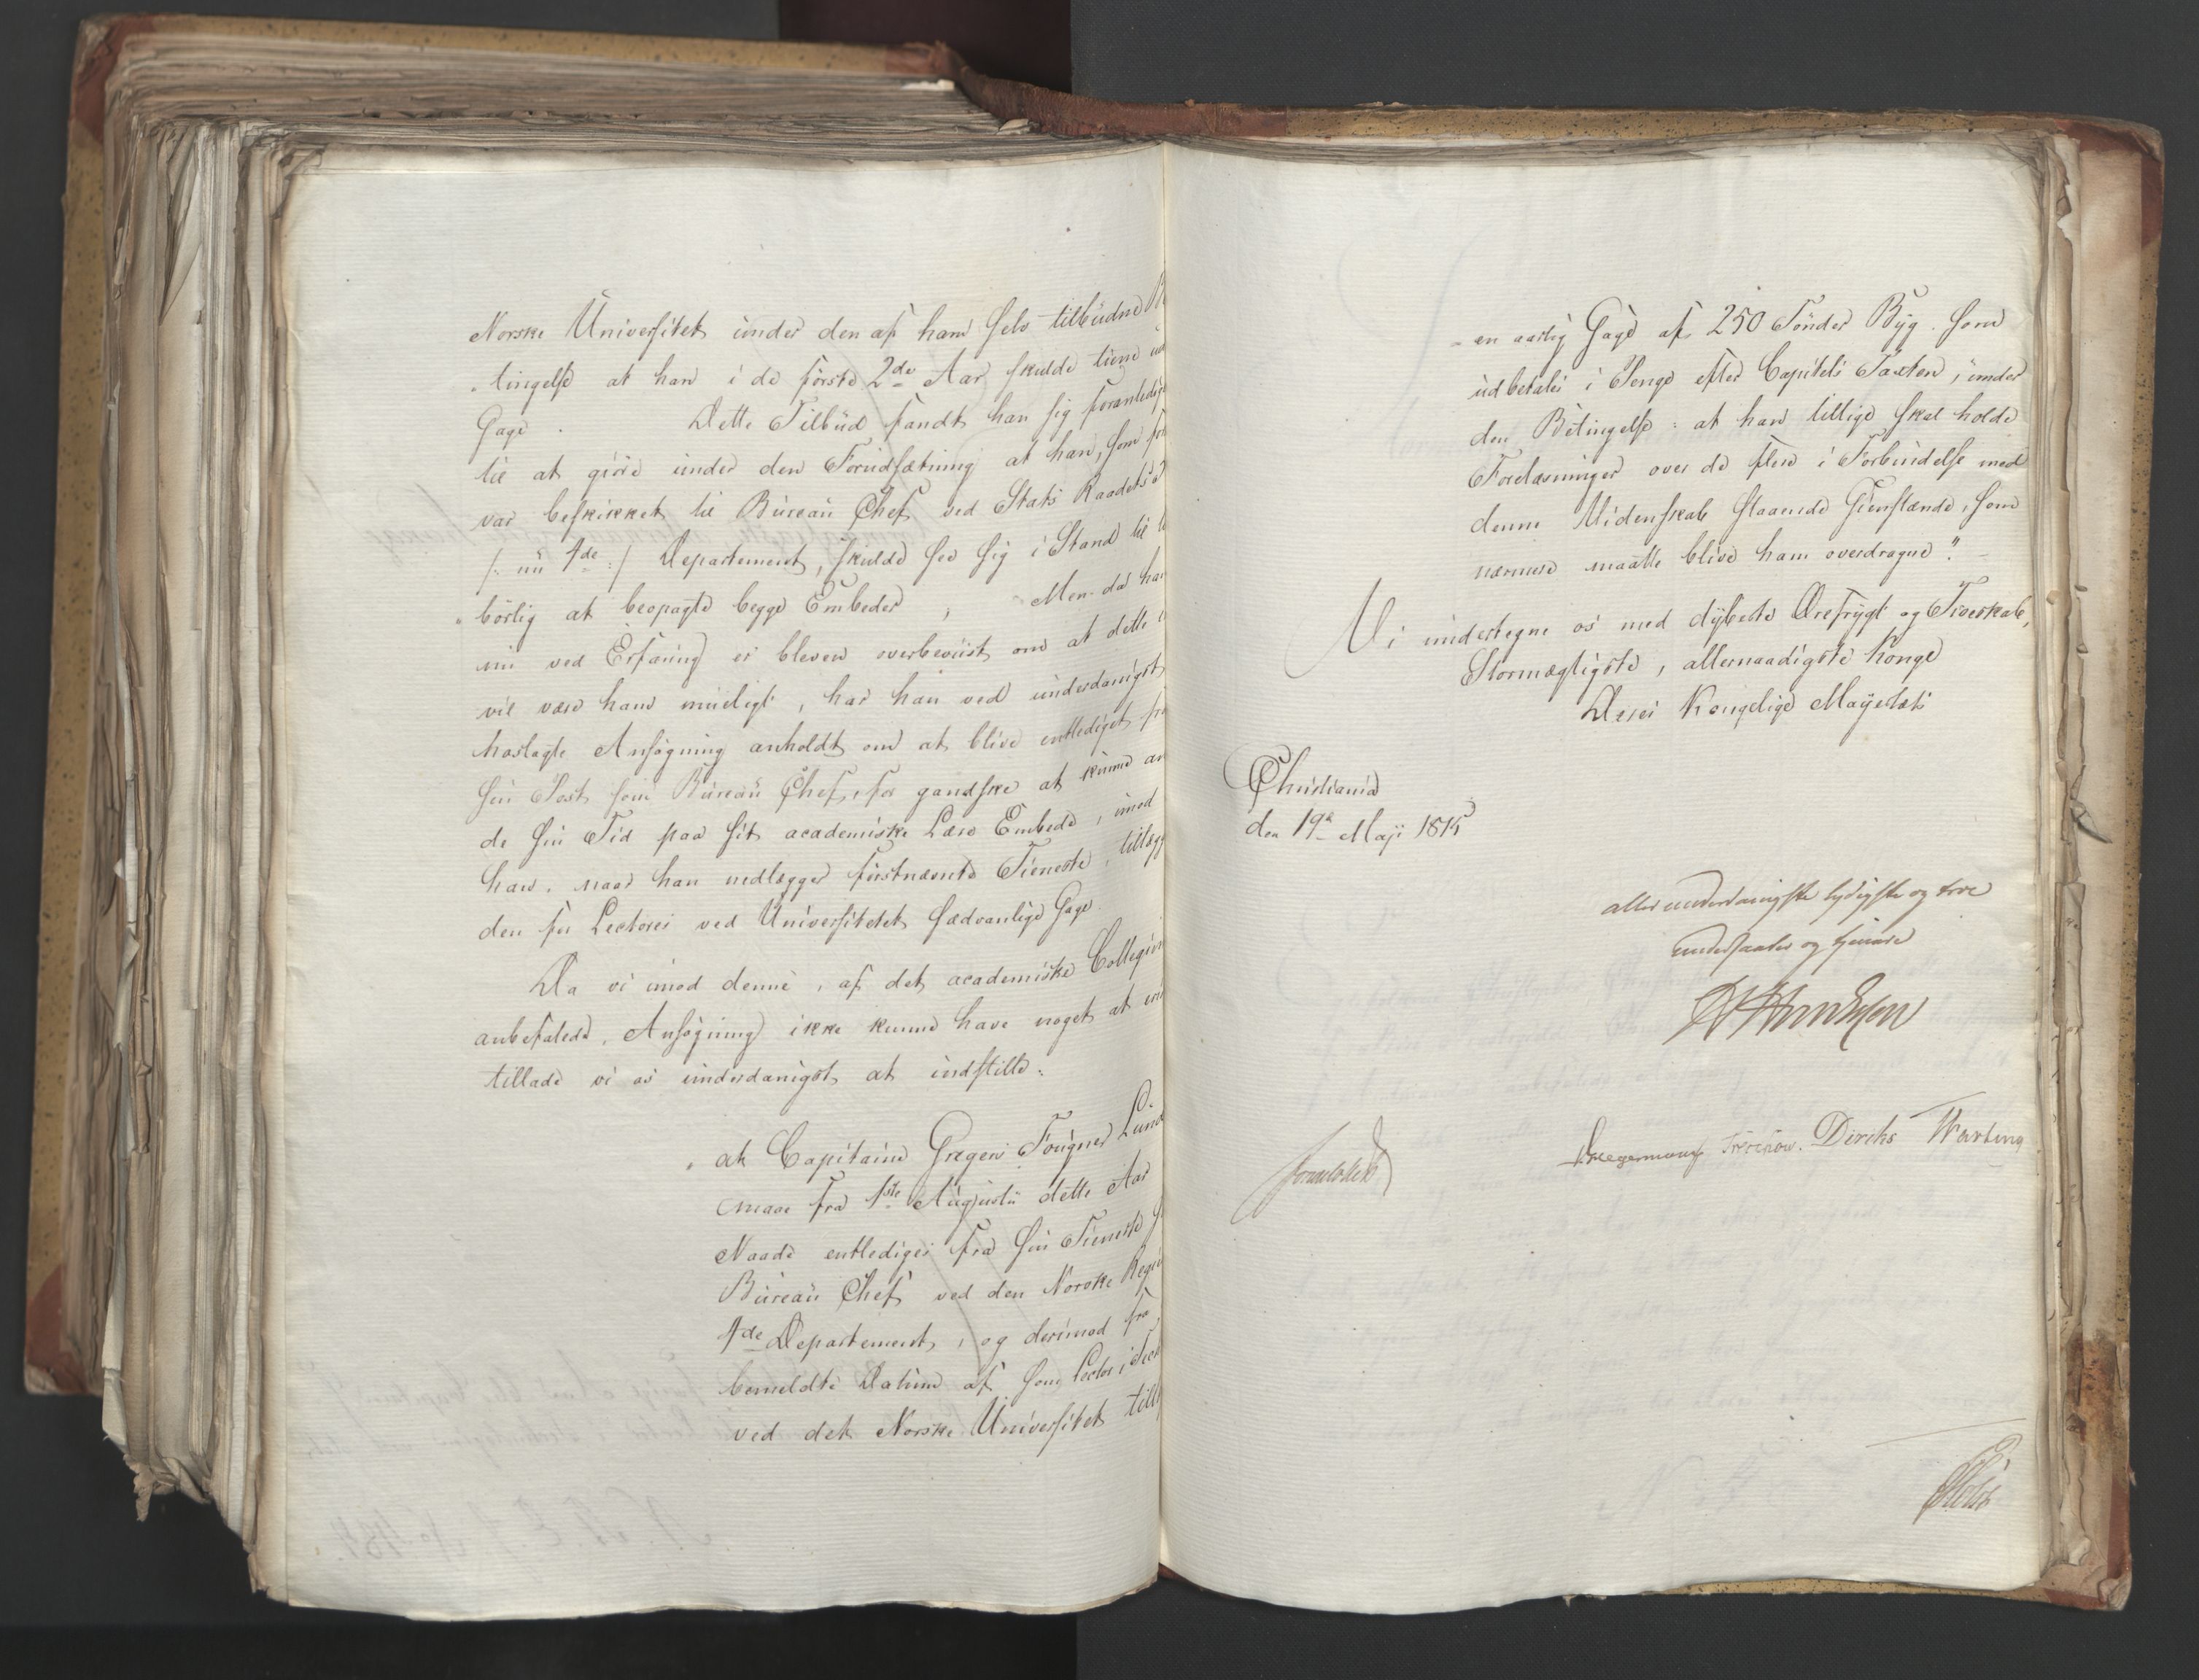 Norske Universitet under den af ham selv tilbudne B
tingelse at han i de første 2de Aar skulde tiene ud
Gage. Dette Tilbud fandt han sig foranledige
til at giøre under den Forudsætning at han, som for
var beskikket til Bureau Chef ved Stats Raadets 2
/: nu 4de :/ Departement, skulde see sig i Stand til t
børlig at beopagte begge Embeder, Men da han
nu ved Erfaring er bleven overbeviist om at dette i
vil være ham mueligt, har han ved underdanigst
hoslagte Ansøgning anholdt om at blive entlediget fra
sin Post som Bureau Chef, for gandske at kunne an
de sin Tid paa sit academiske Lære Embede, imod
han, naar han nedlægger førstnævnte Tieneste, tillægg
den for Lectorer ved Universitetet sædvanlige Gage.
Da vi imod denne, af det academiske Collegium
anbefalede, Ansøgning ikke kunne have noget at eri
tillade vi os underdanigst at indstille:
„at Capitaine Gregers Fougner Lund
maae fra 1ste Augusti dette Aar
Naade entlediges fra sin Tieneste s
Bureau Chef ved den Norske Regie
4de Departement, og derimod fra
bemeldte Datum af som Lector i Tech
ved det Norske Universitet till
en aarlig Gage af 250 Tønder Byg som
udbetales i Penge efter Capitels Taxten, under
den Betingelse: at han tillige skal holde
Forelæsninger over de flere i Forbindelse med
denne Videnskab staaende Gienstande, som
nærmere maatte blive ham overdragne".
Vi undertegne os med dybeste Ærefrygt og Troeskab,
Stormægtigste, allernaadigste Konge
Deres Kongelige Mayestæts
Christiania
den 19de Maji 1815
allerunderdanigste lydigste og troe
undersaatter og tjenere
Sommerhielm
Krieg Treschow. Diriks Motzfeldt
Holst